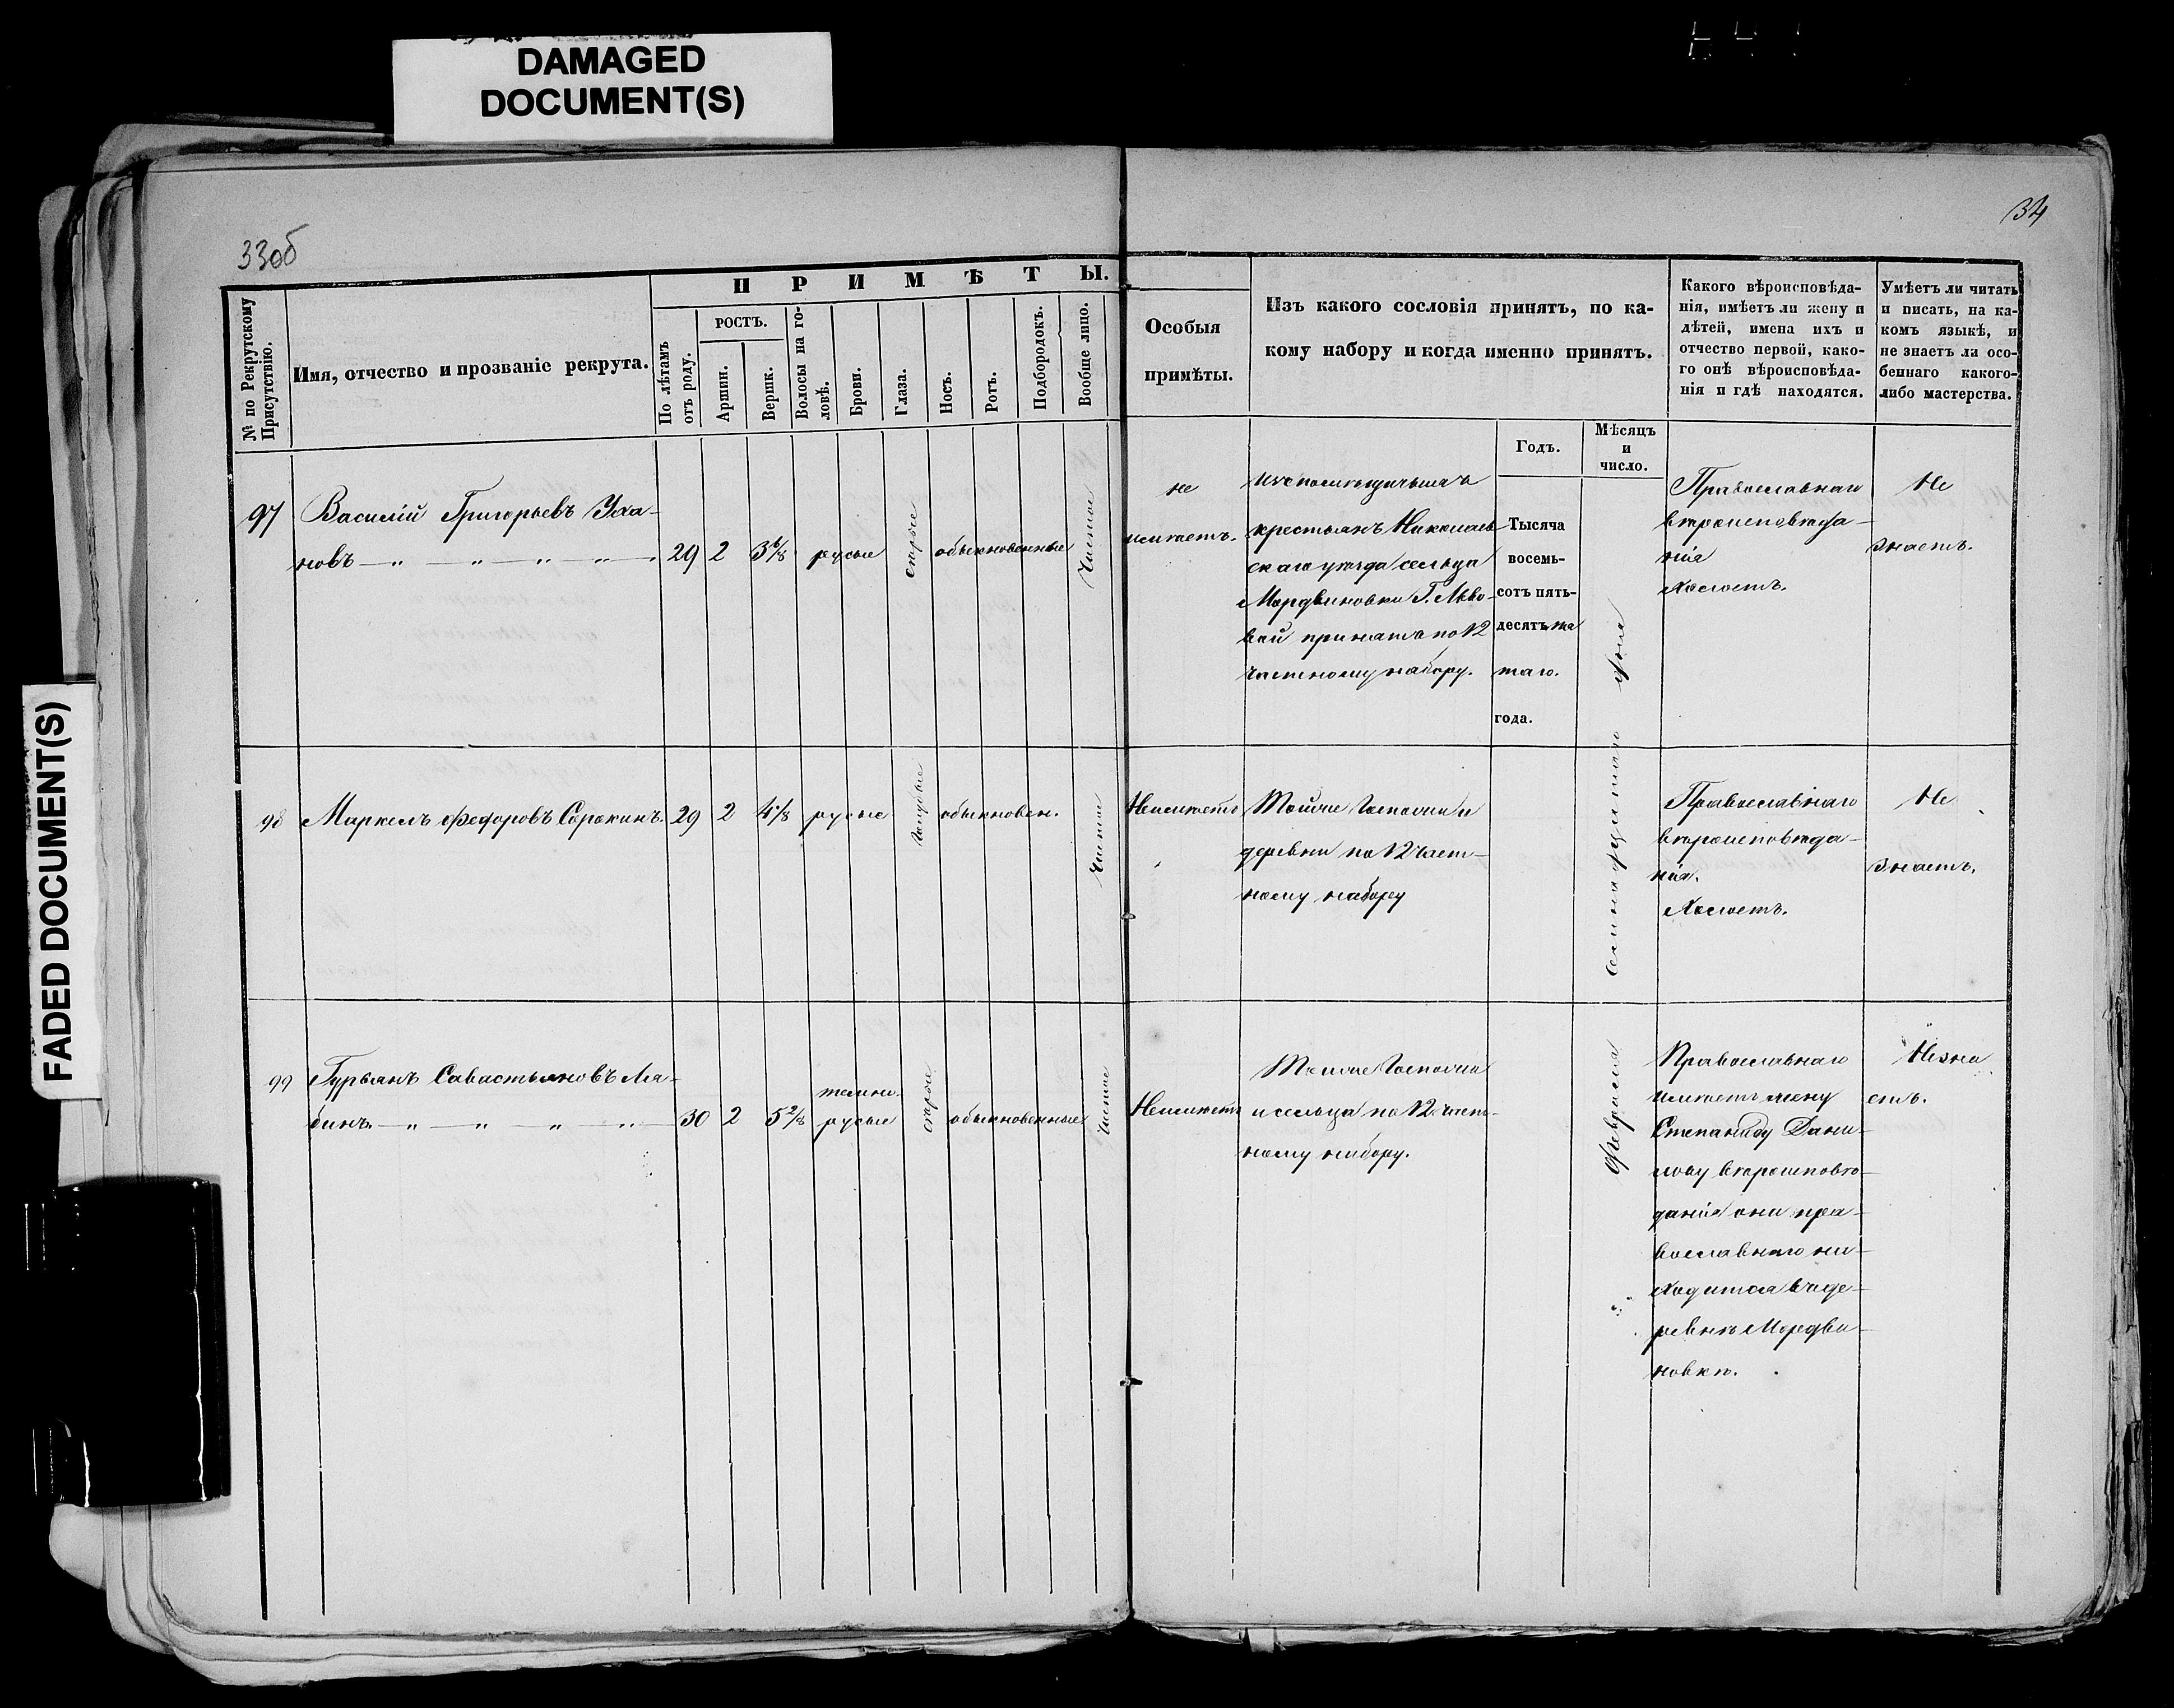 DAMAGED
DOCUMENT(S)
FADED DOCUMENT(S)
33об
34
№ по Рекрутскому
Присутствію.
Имя, отчество и прозваніе рекрута.
ПРИМѢТЫ.
По лѣтамъ
отъ роду.
РОСТЪ.
Аршин.
Вершк.
Волосы на го-
ловѣ.
Брови.
Глаза.
Носъ.
Ротъ.
Подбородокъ.
Вообще лицо.
Особыя
примѣты.
Изъ какого сословія принятъ, по ка-
кому набору и когда именно принятъ.
Годъ.
Мѣсяцъ
и
число.
Какого вѣроисповѣда-
нія, имѣетъ ли жену и
дѣтей, имена ихъ и
отчество первой, како-
го онѣ вѣроисповѣда-
нія и гдѣ находятся.
Умѣетъ ли читать
и писать, на ка-
комъ языкѣ, и
не знаетъ ли осо-
беннаго какого-
либо мастерства.
97
Василій Григорьевъ Уха-
новъ — „ — „ — „ — „ —
29
2
3 6/8
русые
сѣрые
обыкновенные
Чистое
не
имѣетъ.
изъ помѣщичьихъ
крестьянъ Николаев
скаго уѣзда сельца
Мордвиновки Г.
вой принятъ по 12
частному набору.
Тысяча
восемь-
сотъ пять-
десятъ
таго.
года.
Семнадцатаго
Февраля
Православнаго
вѣроисповѣда-
нія
Холостъ.
Не
знаетъ.
98
Маркелъ Федоровъ Сорокинъ.
29
2
4 1/8
русые
Голубые
обыкновен.
Чистое
Неимѣетъ
Тойже Госпожи и
деревни по 12 част-
ному набору
Православнаго
вѣроисповѣда-
нія.
Холостъ.
Не
знаетъ.
99
Гурьянъ Савастьяновъ Ла-
бинъ. — „ — „ — „ — „ —
30
2
5 2/8
темно-
русые
сѣрые
обыкновенные
Чистое
Неимѣетъ
Тойже Госпожи
и сельца по 12 част-
ному набору.
Православнаго
имѣетъ жену
Степаниду Дани-
лову вѣроисповѣ-
данія они пра-
вославнаго на-
ходится въ де-
ревнѣ Мордви-
новкѣ.
Незна
етъ.